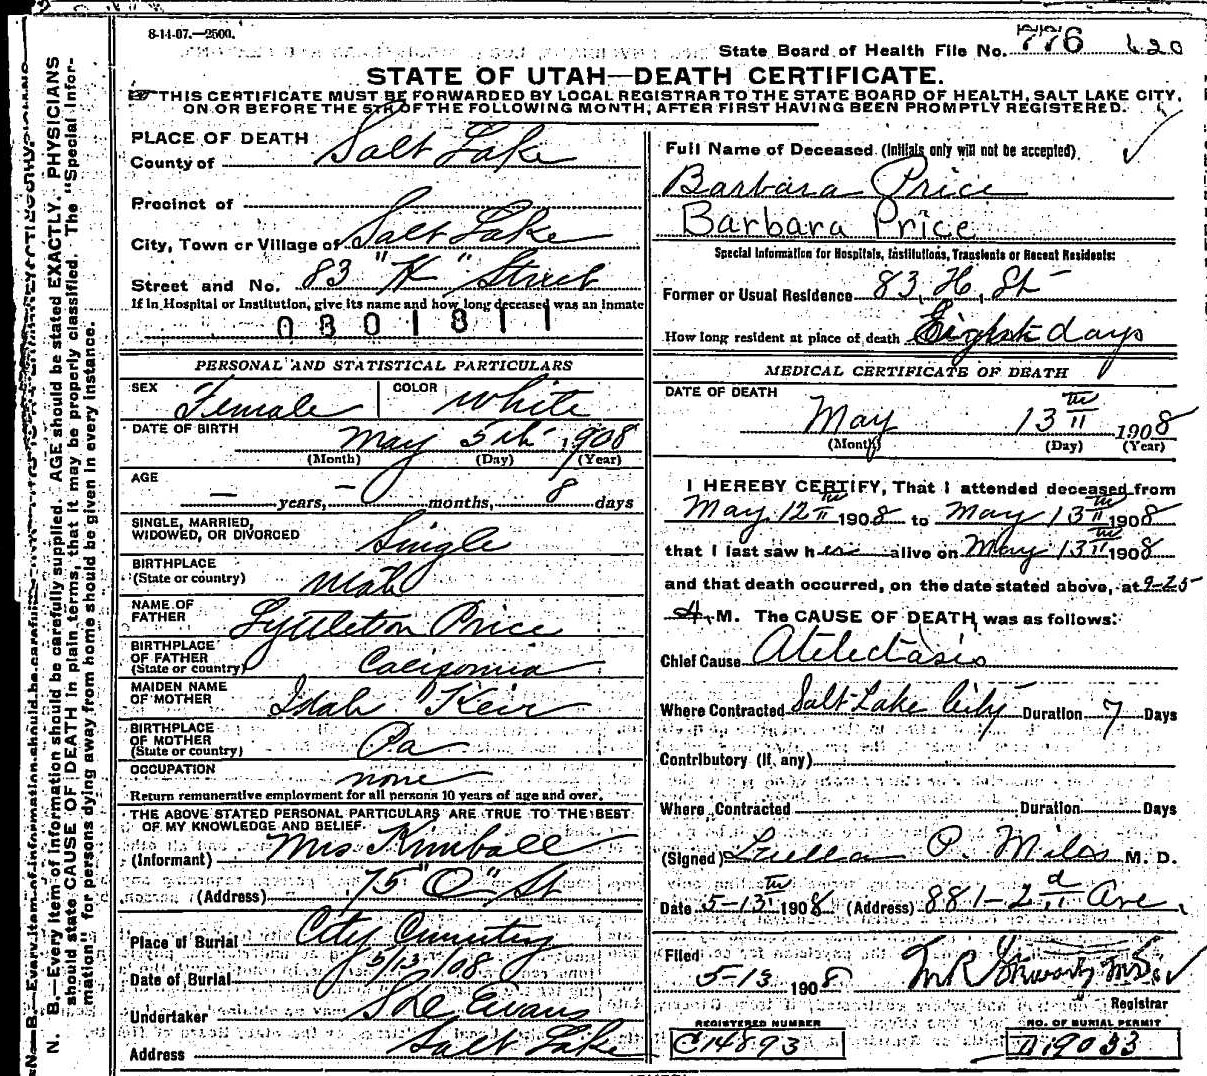 8-14-07.—2500.
State Board of Health File No. 776 620
STATE OF UTAH—DEATH CERTIFICATE.
THIS CERTIFICATE MUST BE FORWARDED BY LOCAL REGISTRAR TO THE STATE BOARD OF HEALTH, SALT LAKE CITY,
ON OR BEFORE THE 5TH OF THE FOLLOWING MONTH, AFTER FIRST HAVING BEEN PROMPTLY REGISTERED.
N. B.—Every item of information should be carefully supplied. AGE should be stated EXACTLY. PHYSICIANS
should state CAUSE OF DEATH in plain terms, that it may be properly classified. The "Special Infor-
mation" for persons dying away from home should be given in every instance.
PLACE OF DEATH
County of Salt Lake
Precinct of
City, Town or Village of Salt Lake
Street and No. 83 "K" Street
If in Hospital or Institution, give its name and how long deceased was an inmate
0801811
PERSONAL AND STATISTICAL PARTICULARS
SEX Female COLOR White
DATE OF BIRTH May 5th 1908
(Month) (Day) (Year)
AGE — years, — months, 8 days
SINGLE, MARRIED,
WIDOWED, OR DIVORCED Single
BIRTHPLACE
(State or country) Utah
NAME OF
FATHER Lyttleton Price
BIRTHPLACE
OF FATHER
(State or country) California
MAIDEN NAME
OF MOTHER Idah Keir
BIRTHPLACE
OF MOTHER
(State or country) Pa
OCCUPATION none
Return remunerative employment for all persons 10 years of age and over.
THE ABOVE STATED PERSONAL PARTICULARS ARE TRUE TO THE BEST
OF MY KNOWLEDGE AND BELIEF.
(Informant) Mrs Kimball
(Address) 75 "O" St
Place of Burial City Cemetery
Date of Burial 5/13/08
Undertaker Evans
Address Salt Lake
Full Name of Deceased (Initials only will not be accepted)
Barbara Price
Barbara Price
Special Information for Hospitals, Institutions, Transients or Recent Residents:
Former or Usual Residence 83, H, St
How long resident at place of death Eight days
MEDICAL CERTIFICATE OF DEATH
DATE OF DEATH
May 13th 1908
(Month) (Day) (Year)
I HEREBY CERTIFY, That I attended deceased from
May 12th 1908 to May 13th 1908
that I last saw her alive on May 13th 1908
and that death occurred, on the date stated above, at 9-25
A. M. The CAUSE OF DEATH was as follows:
Chief Cause Atelectasis
Where Contracted Salt Lake City Duration 7 Days
Contributory (if any)
Where Contracted Duration Days
(Signed) Luella P. Miles M. D.
Date 5-13th 1908 (Address) 881-2d Ave.
Filed
5-13 1908
Registrar
REGISTERED NUMBER
C14893
NO. OF BURIAL PERMIT
D19033